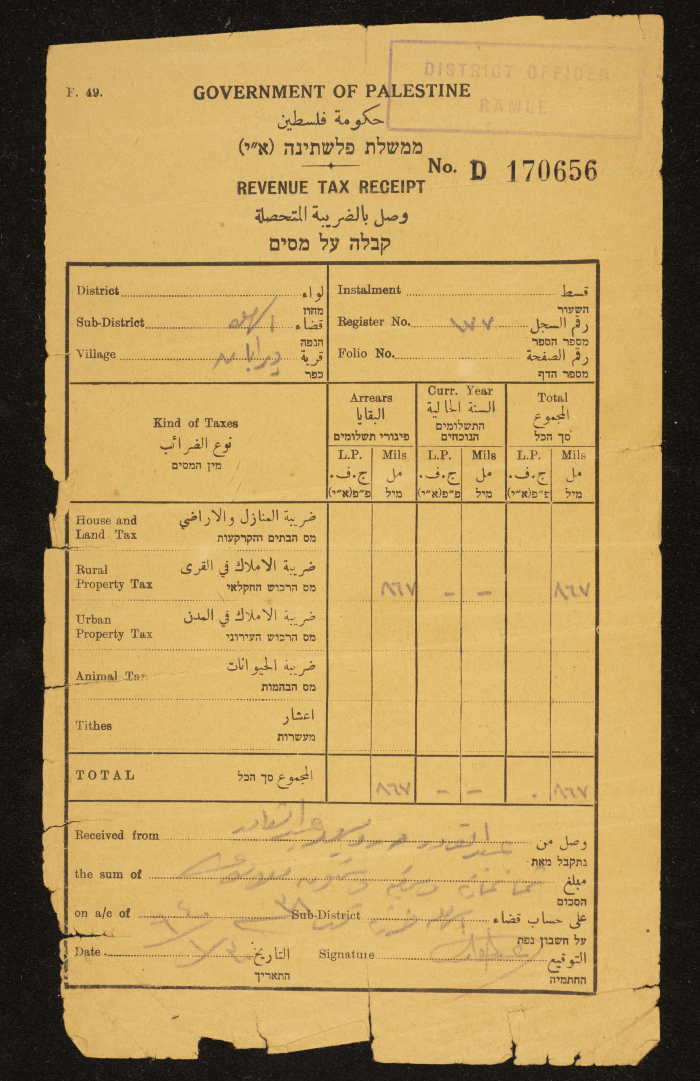 DISTRICT OFFICER
RAMLE
F. 49.
GOVERNMENT OF PALESTINE
حكومة فلسطين
ממשלת פלשתינה (א״י)
No. D 170656
REVENUE TAX RECEIPT
وصل بالضريبة المتحصلة
קבלה על מסים
District لواء
מחוז
Sub-District قضاء
הנפה
Village قرية
כפר
Instalment قسط
השעור
Register No. ١٧٧ رقم السجل
מספר הספר
Folio No. رقم الصفحة
מספר הדף
Kind of Taxes
نوع الضرائب
מין המסים
Arrears
البقايا
פיגורי תשלומים
Curr. Year
السنة الحالية
התשלומים
הנוכחים
Total
المجموع
סך הכל
L.P. Mils L.P. Mils L.P. Mils
ج.ف. مل ج.ف. مل ج.ف. مل
פ״פ(א״י) מיל פ״פ(א״י) מיל פ״פ(א״י) מיל
House and
Land Tax
ضريبة المنازل والاراضي
מס הבתים והקרקעות
Rural
Property Tax
ضريبة الاملاك في القرى
מס הרכוש החקלאי
٨٦٧ - - ٨٦٧
Urban
Property Tax
ضريبة الاملاك في المدن
מס הרכוש העירוני
Animal Tax
ضريبة الحيوانات
מס הבהמות
Tithes
اعشار
מעשרות
TOTAL المجموع סך הכל ٨٦٧ - - ٠ ٨٦٧
Received from وصل من
נתקבל מאת
the sum of مبلغ
הסכום
on a/c of Sub-District على حساب قضاء
על חשבון נפת
Date التاريخ
התאריך
Signature التوقيع
החתימה